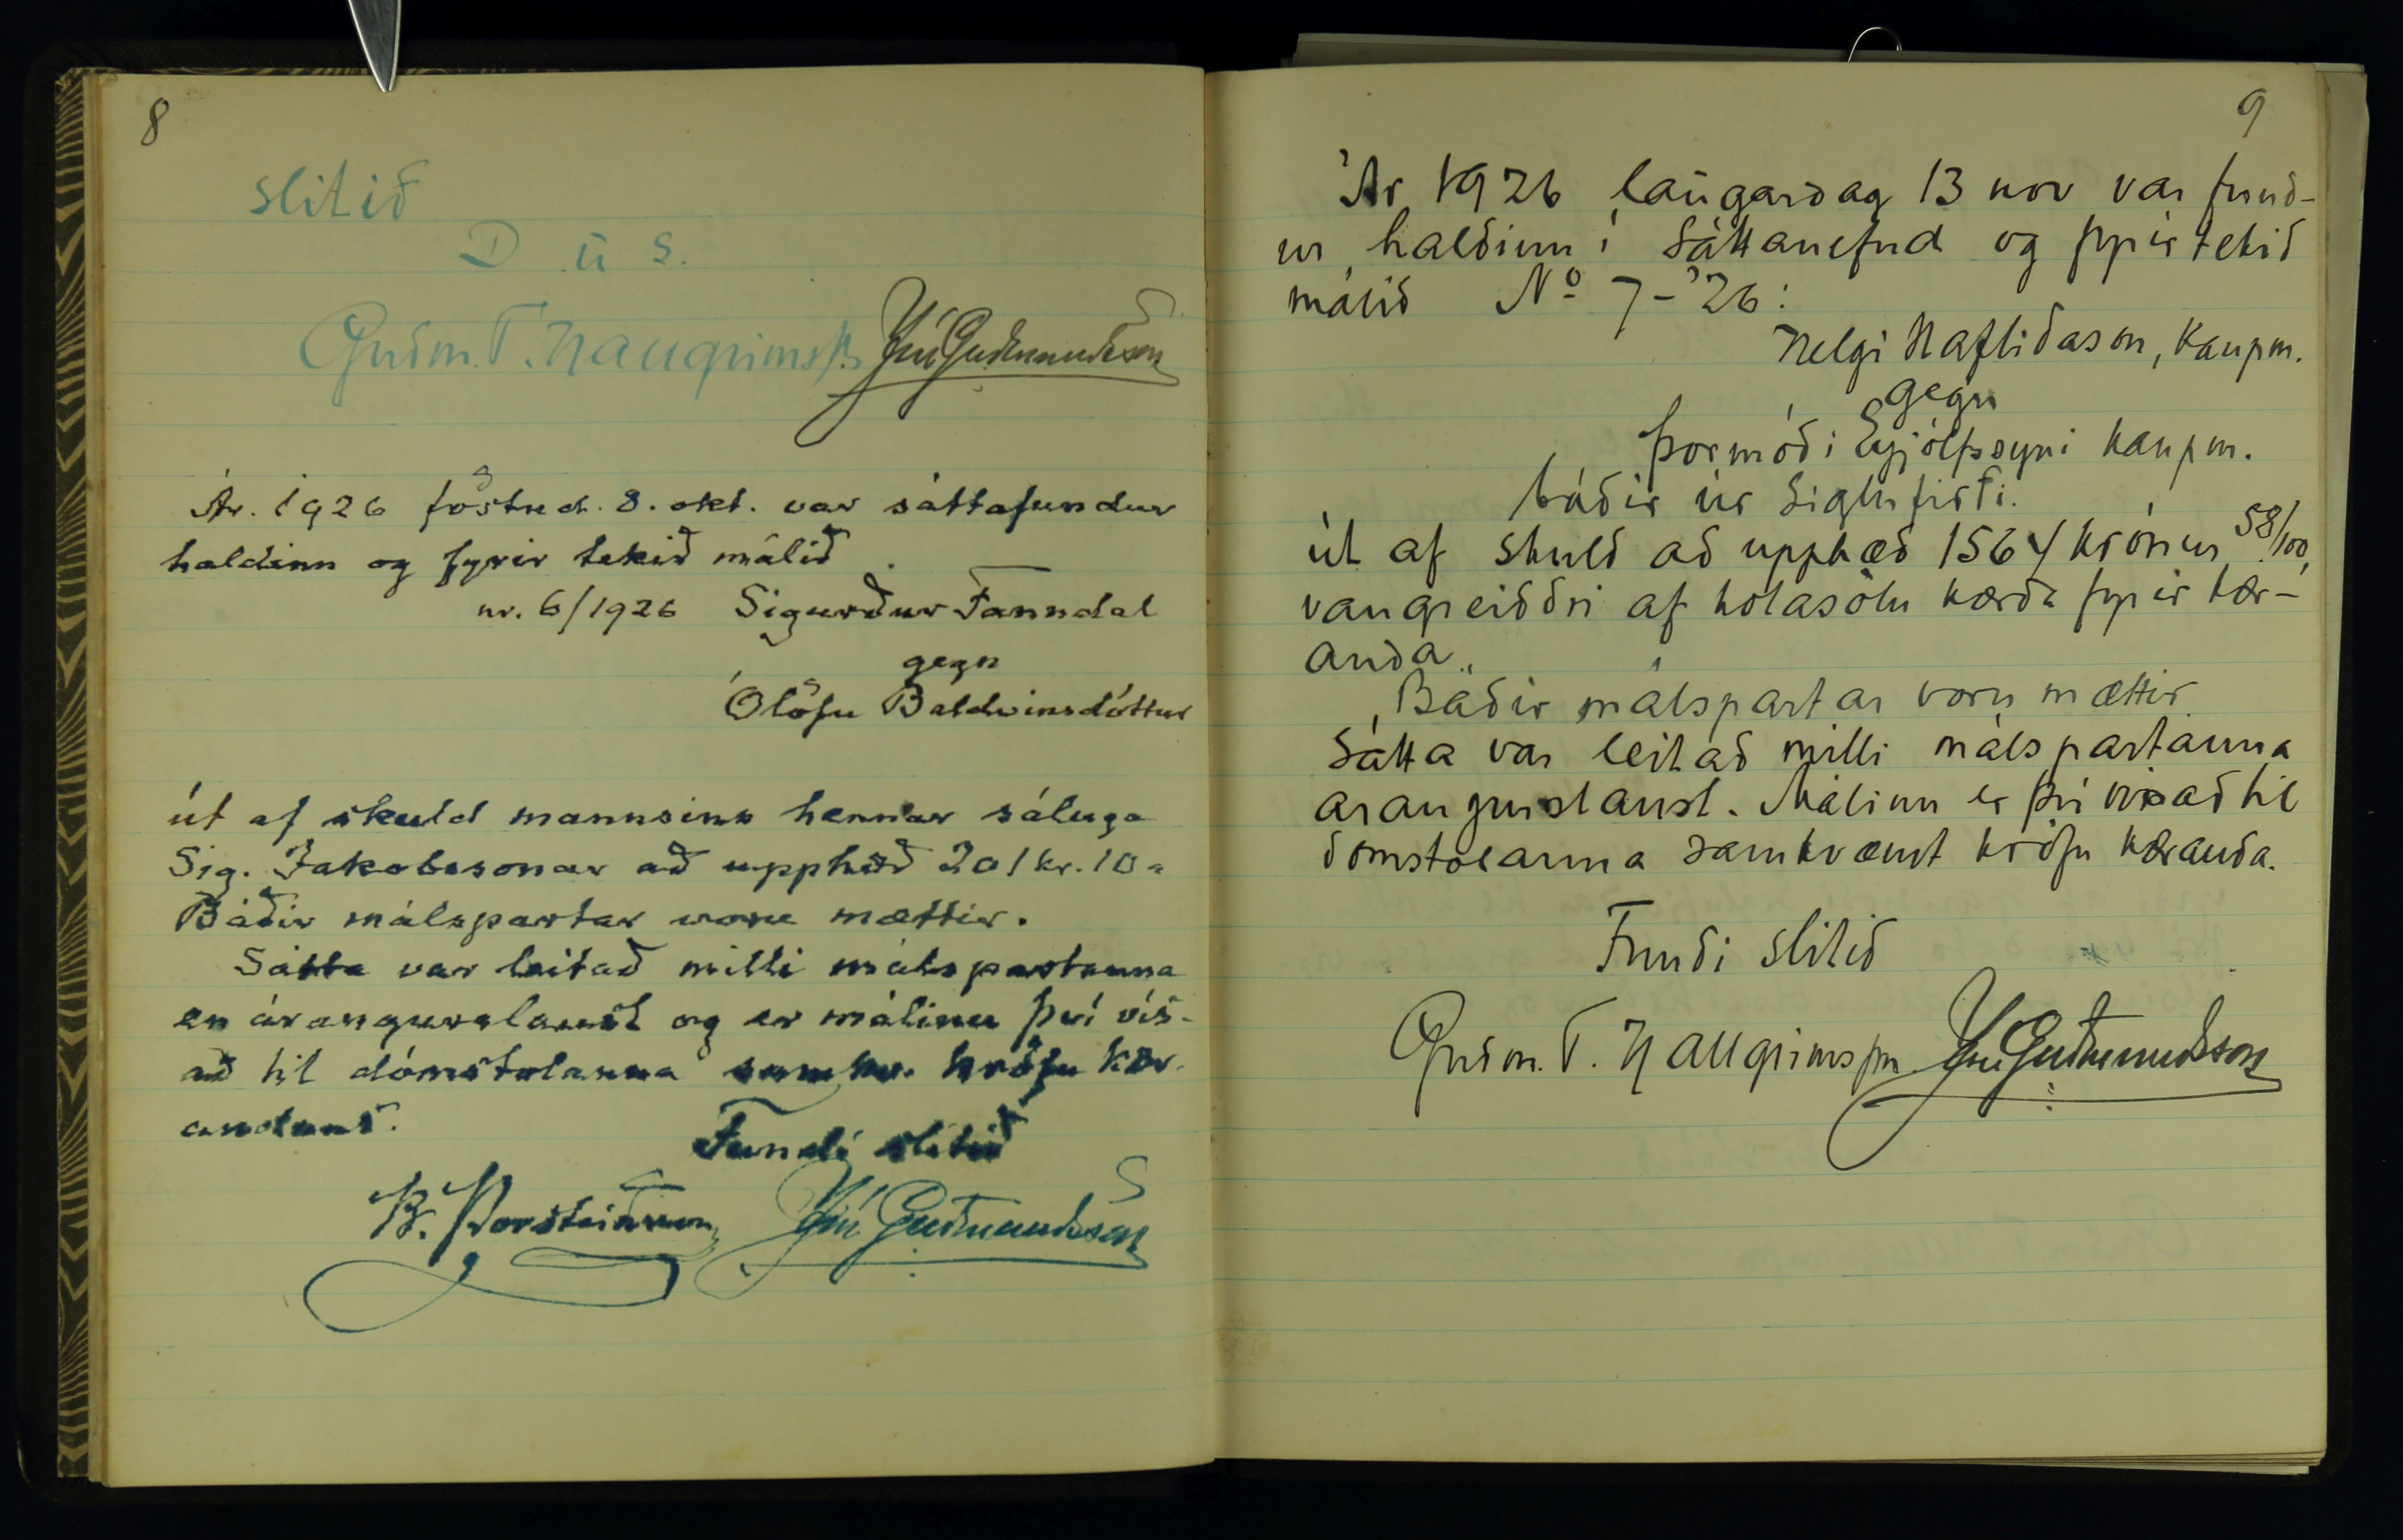 8
slitið
D ú s.
Guðm. T. Hallgrimss. Jón Guðmundsson
Ár. 1926 föstud. 8. okt. var sáttafundur
haldinn og fyrir tekið málið
nr. 6/1926 Sigurður Fanndal
gegn
Ólöfu Baldvinsdóttur
út af skuld mannsins hennar sáluga
Sig. Jakobssonar að upphæð 201 kr. 10 a
Báðir málspartar voru mættir.
Sátta var leitað milli málspartanna
en árangurslaust og er málinu því vís-
að til dómstolanna samkv. kröfu kær-
andans.
Fundi slitið
B. Þorsteinsson Jón Guðmundsson
9
Ár 1926 laugardag 13 nov var fund-
ur haldinn í Sáttanefnd og fyrirtekið
málið No 7-'26:
Helgi Hafliðason, Kaupm.
gegn
Þormóði Eyjólfssyni kaupm.
báðir úr Siglufirði.
út af skuld að upphæð 1564 krónur 58/100,
vangreiddri af kolasölu kærða fyrir kær-
anda.
Báðir málspartar voru mættir.
Sátta var leitað milli málspartanna
arangurslaust. Málinu er þvi visað til
domstolanna samkvæmt kröfu kæranda.
Fundi slitið
Guðm. T. Hallgrimsson Jón Guðmundsson